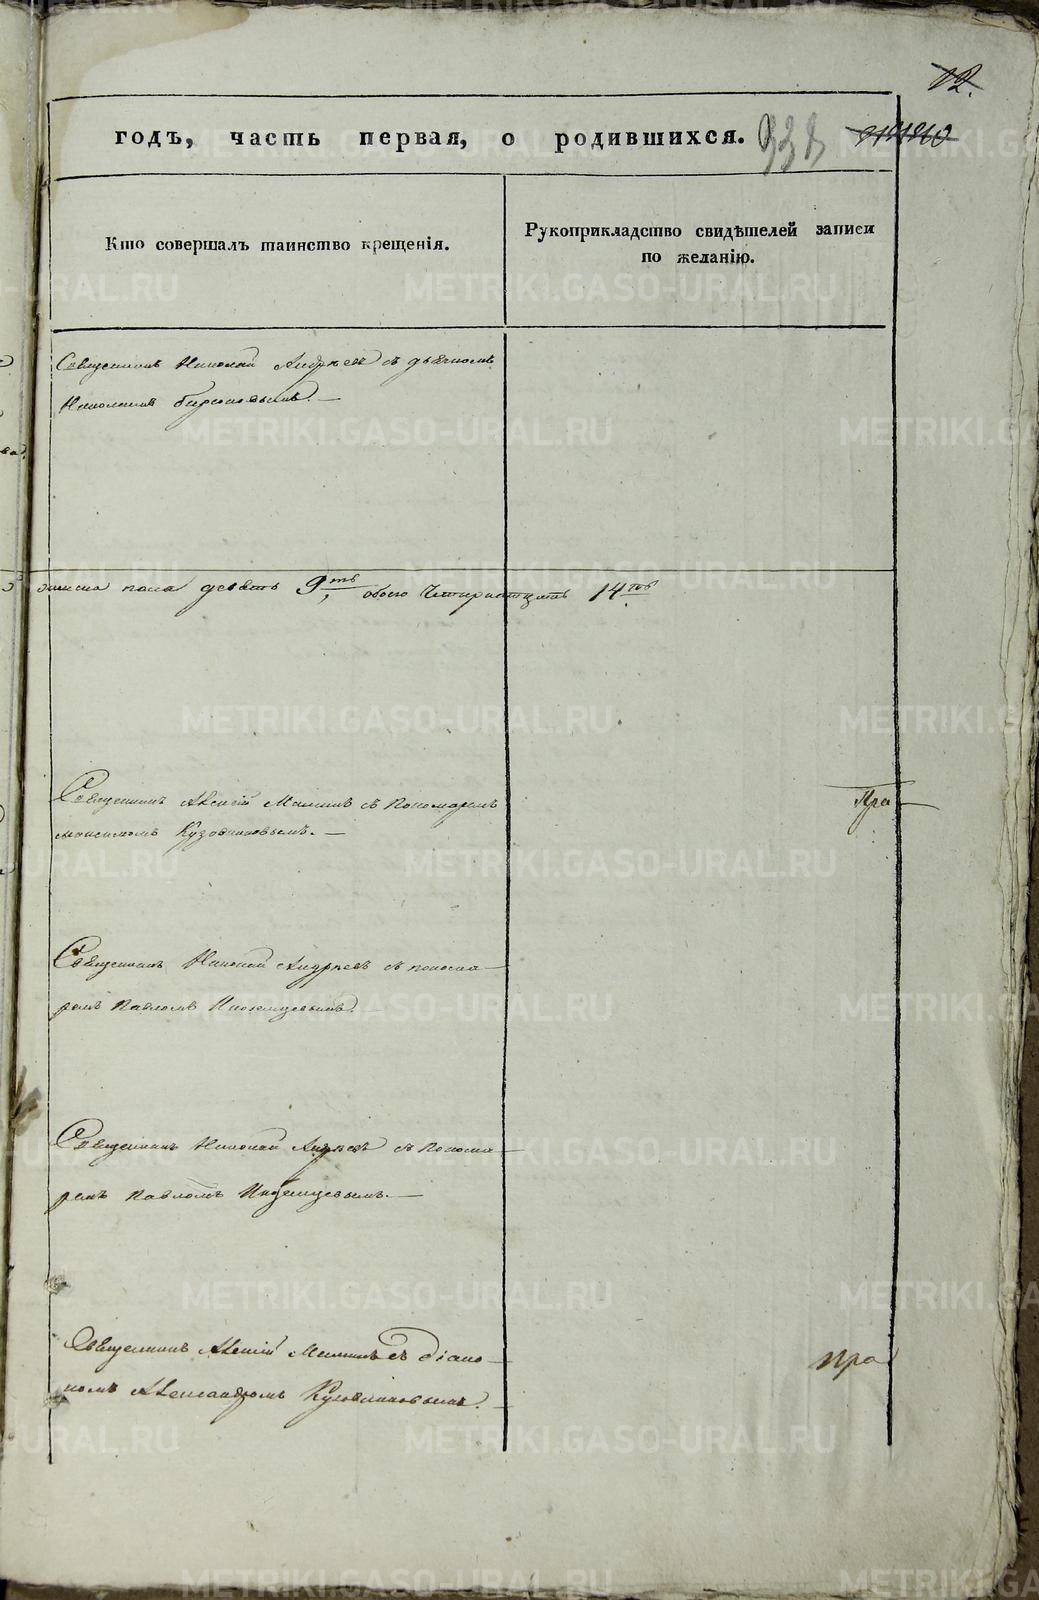 12.
годъ, часть первая, о родившихся. 338
Кто совершалъ таинство крещенія.
Рукоприкладство свидѣтелей записи
по желанію.
Священникъ Николай Андреевъ съ дьячкомъ
Николаемъ
женска пола девять 9ть, обоего Четырнатцать 14ть
Священникъ Алексій Малинъ съ Пономаремъ
Максимомъ Кузовниковымъ. —
Пра
Священникъ Николай Андреевъ съ понома-
ремъ Павломъ Иноземцевымъ. —
Священникъ Николай Андреевъ съ Понома-
ремъ Павломъ Иноземцевымъ. —
Священникъ Алексій Малинъ съ Діако-
номъ Александромъ Кузовниковымъ. —
Пра
METRIKI.GASO-URAL.RU